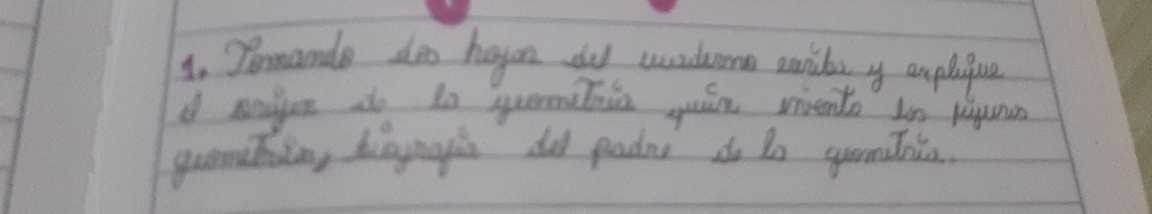 1. Tomando dos hojas del cuaderno escriba y explique
el origen de la geometria quien invento las figuras
geometricas, biografia del padre de la geometria.